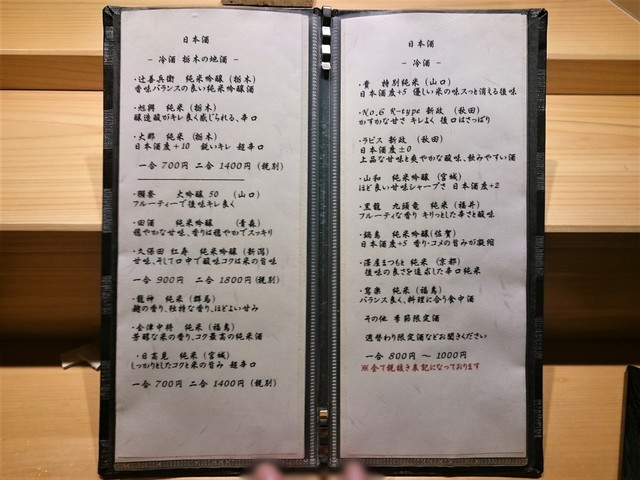 日本酒
－ 冷酒 栃木の地酒 －
・辻善兵衛 純米吟醸 (栃木)
香味バランスの良い純米吟醸酒
・旭興 純米 (栃木)
醸造酸がキレ良く感じられる、辛口
・大那 純米 (栃木)
日本酒度+10 鋭いキレ 超辛口
一合 700円 二合 1400円 (税別)
・獺祭 大吟醸 50 (山口)
フルーティーで後味キレ良く
・田酒 純米吟醸 (青森)
穏やかな甘味、香りは穏やかでスッキリ
・久保田 紅寿 純米吟醸 (新潟)
甘味、そして口中で酸味コクは米の旨味
一合 900円 二合 1800円(税別)
・龍神 純米 (群馬)
麹の香り、独特な香り、ほどよい甘み
・会津中将 純米 (福島)
芳醇な米の香り、コク最高の純米酒
・日高見 純米 (宮城)
しっかりとしたコクと米の旨み 超辛口
一合 700円 二合 1400円 (税別)
日本酒
－ 冷酒 －
・貴 特別純米 (山口)
日本酒度+5 優しい米の味スっと消える後味
・No.6 R-type 新政 (秋田)
かすかな甘さ キレよく 後口はさっぱり
・ラピス 新政 (秋田)
日本酒度±0
上品な甘味と爽やかな酸味、飲みやすい酒
・山和 純米吟醸 (宮城)
ほど良い甘味シャープさ 日本酒度+2
・黒龍 九頭竜 純米 (福井)
フルーティな香り キリっとした辛さと酸味
・鍋島 純米吟醸(佐賀)
日本酒度+5 香り・コメの旨みが凝縮
・澤屋まつもと 純米 (京都)
後味の良さを追求した辛口純米
・写楽 純米 (福島)
バランス良く、料理に合う食中酒
その他 季節限定酒
週替わり限定酒などお聞きください
一合 800円 ～ 1000円
※全て税抜き表記になっております